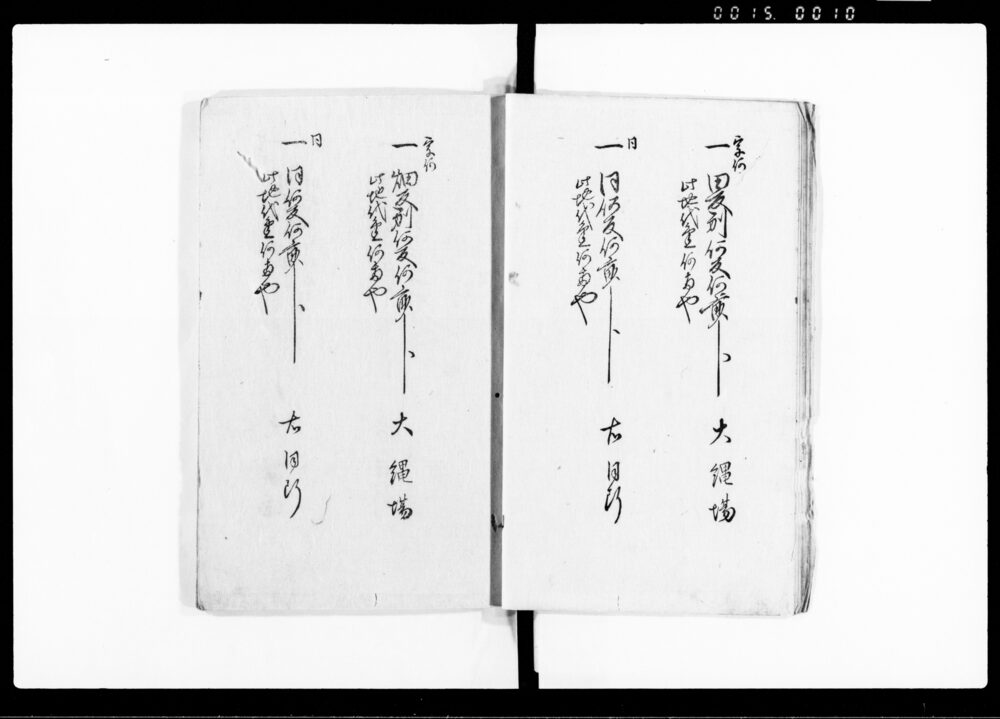 0015.0010
字何
一田反別何反何畝歩 大縄場
此地代金何両也
同
一同何反何畝歩 右同断
此地代金何両也
字何
一畑反別何反何畝歩 大縄場
此地代金何両也
同
一同何反何畝歩 右同断
此地代金何両也